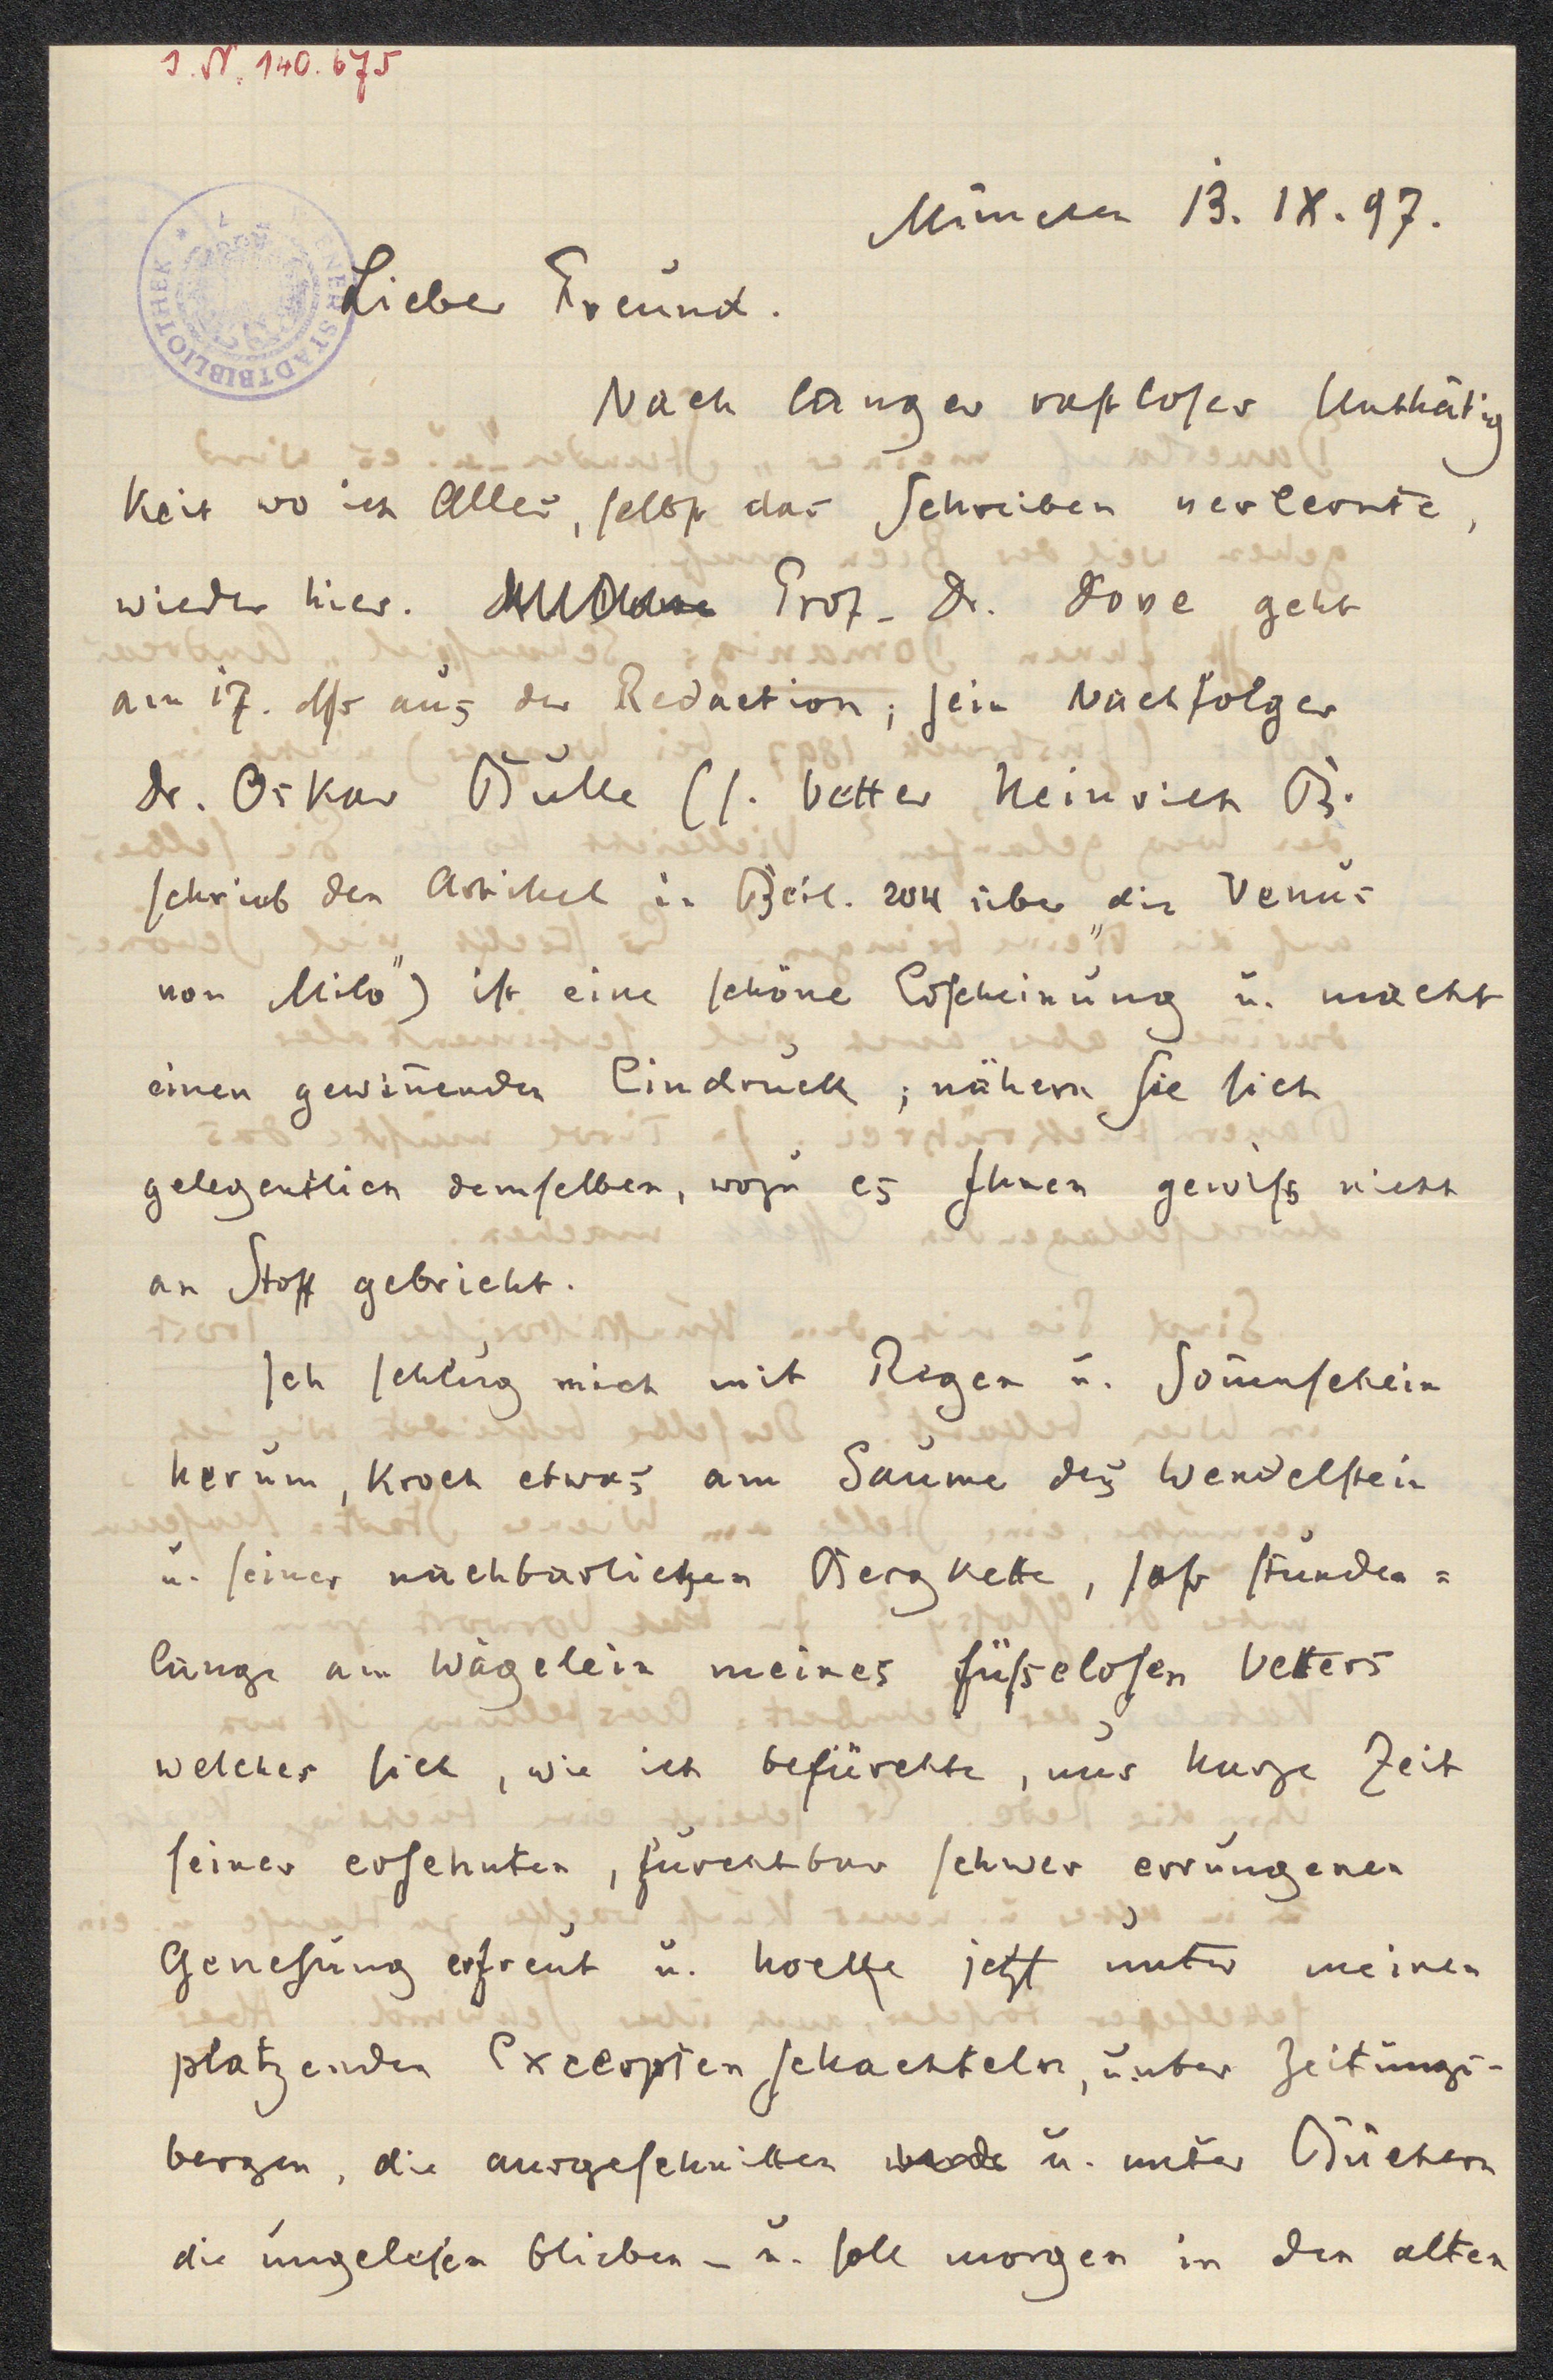 I. N. 140.675
München 13. IX. 97.
Lieber Freund.
Nach langer rastloser Unthätig
keit wo ich Alles, selbst das Schreiben verlernte,
wieder hier. Prof. Dr. Dove geht
am 17. dſs aus der Redaction; sein Nachfolger
Dr. Oskar Bulle (s. Vetter Heinrich B.
schrieb den Artikel in Beil. 204 über „die Venus
von Milo") ist eine schöne Erscheinung u. macht
einen gewiñenden Eindruck; nähern Sie sich
gelegentlich demselben, wozu es Ihnen gewiſs nicht
an Stoff gebricht.
Ich schlug mich mit Regen u. Soñenschein
herum, kroch etwas am Saume des Wendelstein
u. seiner nachbarlichen Bergkette, saſs stunden=
lange am Wägelein meines füſselosen Vetters
welcher sich, wie ich befürchte, nur kurze Zeit
seiner ersehnten, furchtbar schwer errungenen
Genesung erfreut u. hocke jetzt unter meinen
platzenden Excerptenschachteln, unter Zeitungs-
bergen, die ausgeschnitten werde u. unter Büchern
die ungelesen blieben – u. soll morgen in den alten
WIENER STADTBIBLIOTHEK